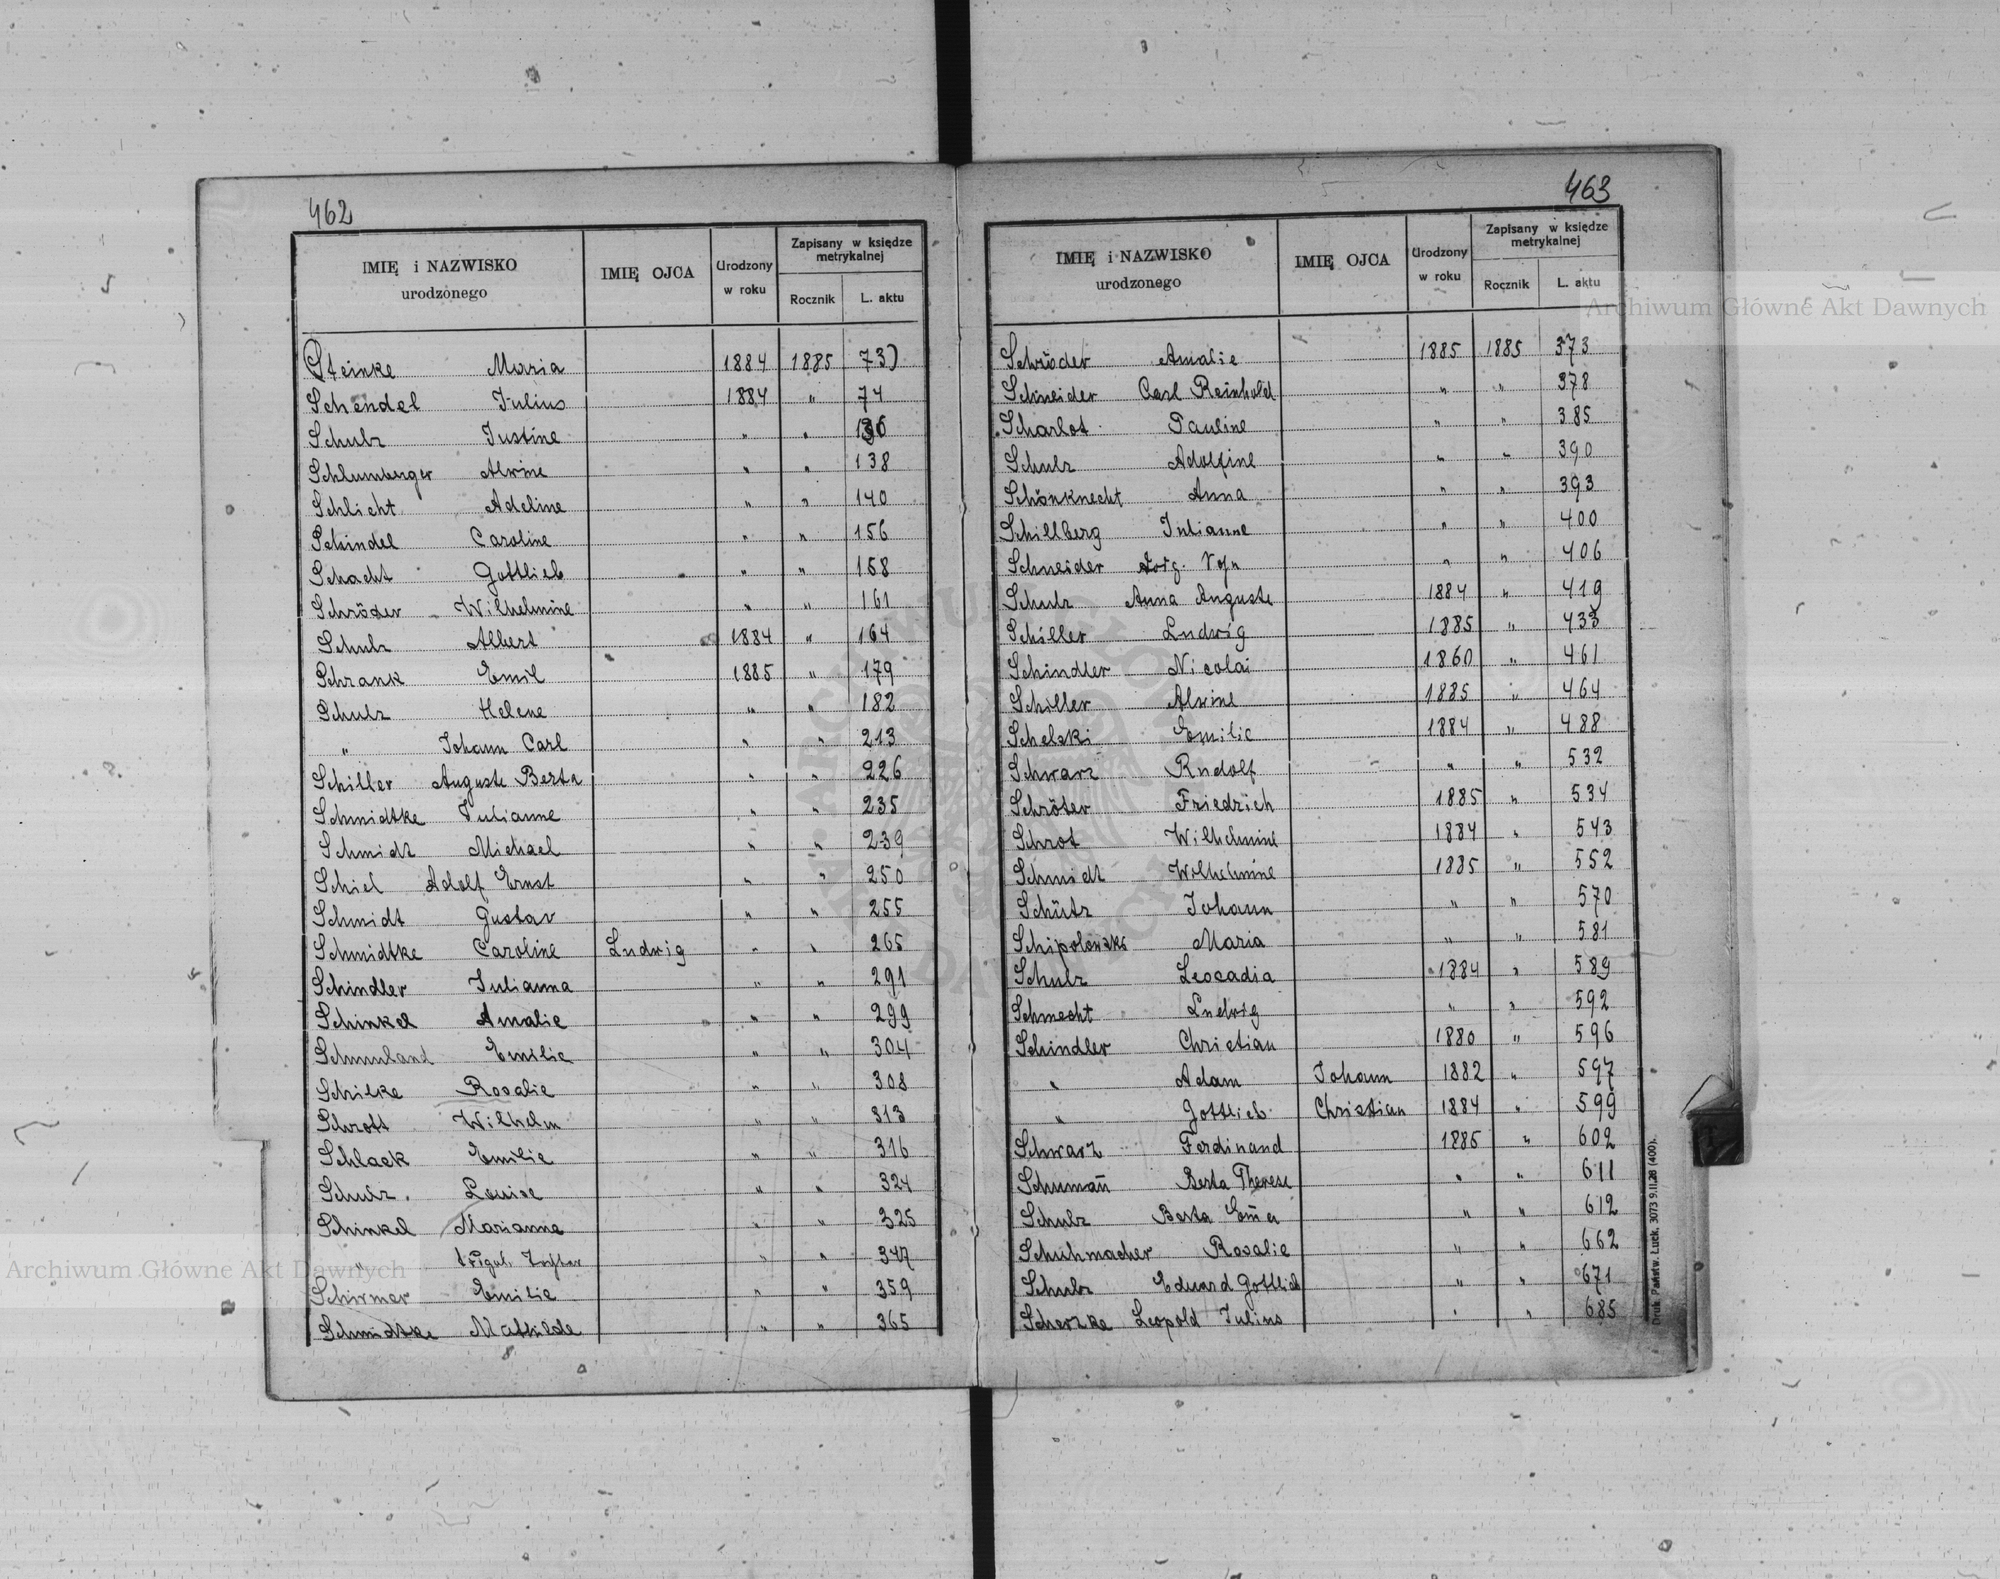 462
IMIĘ i NAZWISKO urodzonego IMIĘ OJCA Urodzony w roku Zapisany w księdze metrykalnej Rocznik L. aktu
Steinke Maria 1884 1885 73)
Schendel Julius 1884 " 74
Schulz Justine " " 136
Schlumberger Alwine " " 138
Schlicht Adeline " " 140
Schindel Caroline " " 156
Schacht Gottlieb " " 158
Schröder Wilhelmine " " 161
Schulz Albert 1884 " 164
Schrank Emil 1885 " 179
Schulz Helene " " 182
" Johann Carl " " 213
Schiller Auguste Berta " " 226
Schmidtke Julianne " " 235
Schmidt Michael " " 239
Schiel Adolf Ernst " " 250
Schmidt Gustav " " 255
Schmidtke Caroline Ludwig " " 265
Schindler Julianna " " 291
Schinkel Amalie " " 299
Schmuland Emilie " " 304
Schilke Rosalie " " 308
Schrott Wilhelm " " 313
Schlack Emilie " " 316
Schulz Louise " " 324
Schinkel Marianne " " 325
" " " 347
Schirmer Emilie " " 359
Schmidtke Mathilde " " 365
463
IMIĘ i NAZWISKO urodzonego IMIĘ OJCA Urodzony w roku Zapisany w księdze metrykalnej Rocznik L. aktu
Schröder Amalie 1885 1885 373
Schneider Carl Reinhold " " 378
Scharlot Pauline " " 385
Schulz Adolfine " " 390
Schönknecht Anna " " 393
Schillberg Julianne " " 400
Schneider " " 406
Schulz Anna Auguste 1884 " 419
Schiller Ludwig 1885 " 433
Schindler Nicolai 1860 " 461
Schiller Alwine 1885 " 464
Schelski Emilie 1884 " 488
Schwarz Rudolf " " 532
Schröter Friedrich 1885 " 534
Schrot Wilhelmine 1884 " 543
Schmidt Wilhelmine 1885 " 552
Schütz Johann " " 570
Maria " " 581
Schulz Leocadia 1884 " 589
Schmecht Ludwig " " 592
Schindler Christian 1880 " 596
" Adam Johann 1882 " 597
" Gottlieb Christian 1884 " 599
Schwarz Ferdinand 1885 " 602
Schumañ Berta Therese " " 611
Schulz Berta Em̄a " " 612
Schuhmacher Rosalie " " 662
Schulz Eduard Gottlieb " " 671
Scherzke Leopold Julius " " 685
Druk. Państw. Łuck. 3073 9.II.28 (400).
Archiwum Główne Akt Dawnych
Archiwum Główne Akt Dawnych